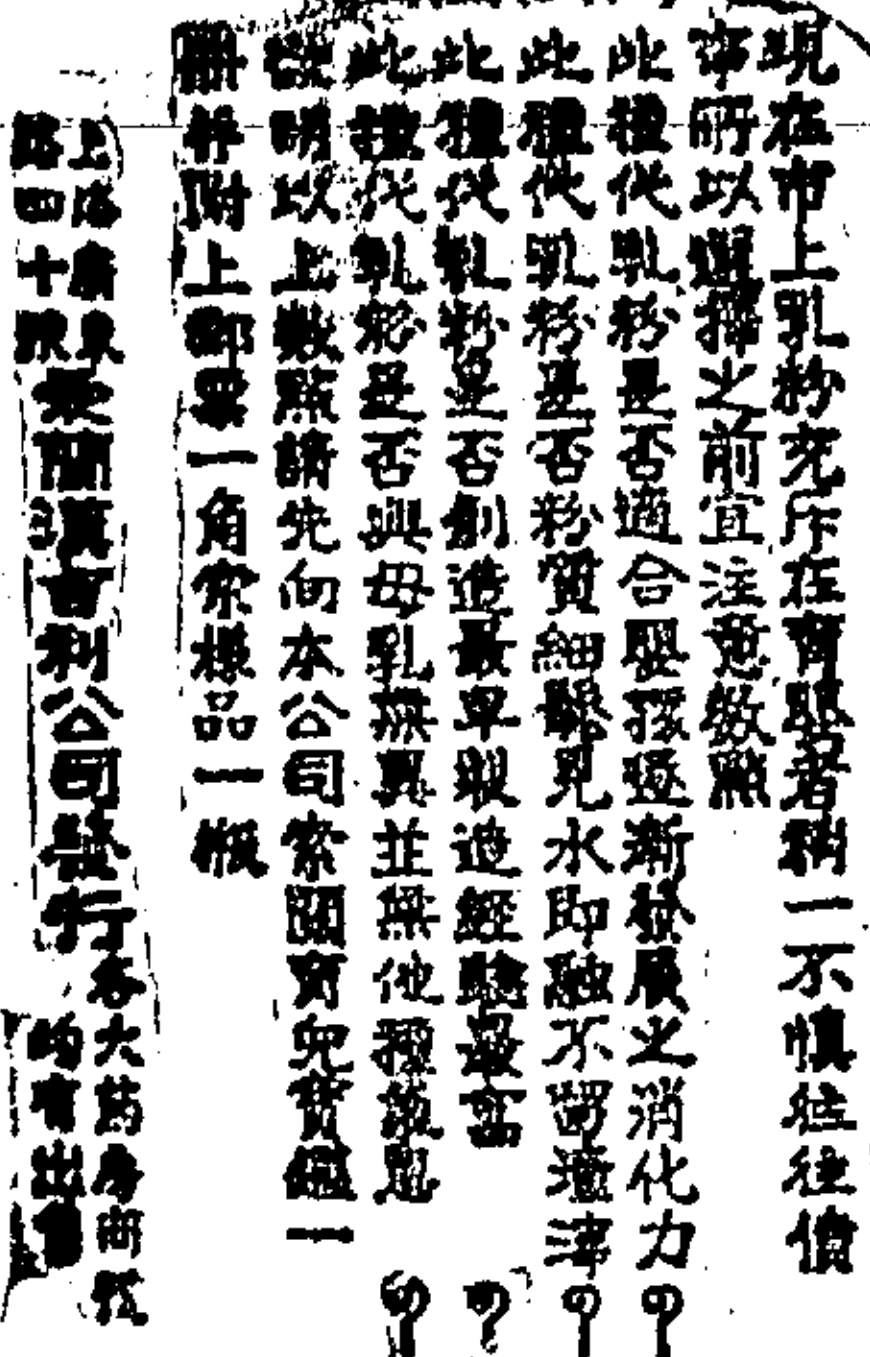 現在市上乳粉充斥在育嬰者稍一不慎往往僨
事所以選擇之前宜注意數點
此種代乳粉是否適合嬰孩逐漸發展之消化力?
此種代乳粉是否粉質細緻見水即融不留渣滓?
此種代乳粉是否創造最早製造經驗最富?
此種代乳粉是否與母乳無異並無他種
欲明以上數點請先向本公司索閱育兒寶鑑一
冊並附上郵票一角索樣品一瓶
上海廣東
路四十號
愛蘭漢百利公司發行
各大藥房商號
均有出售